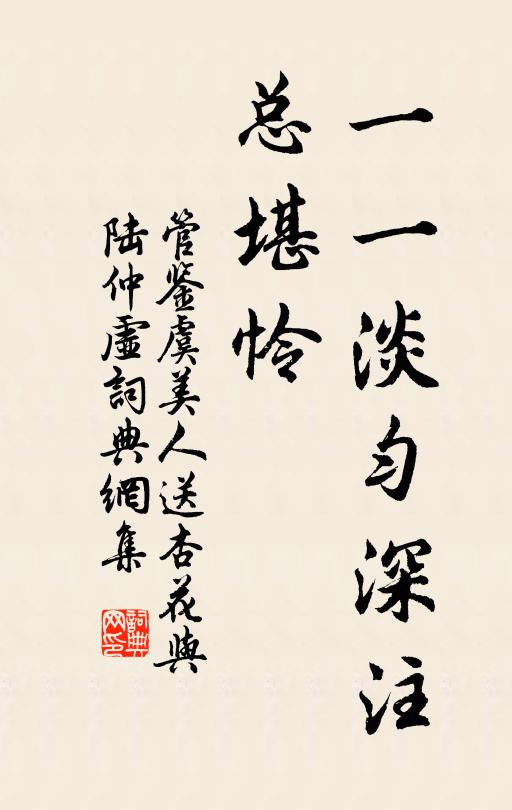 一一淡匀深注
总堪怜
管鉴虞美人送杏花與
陆仲虚詞典網集
詞典网印